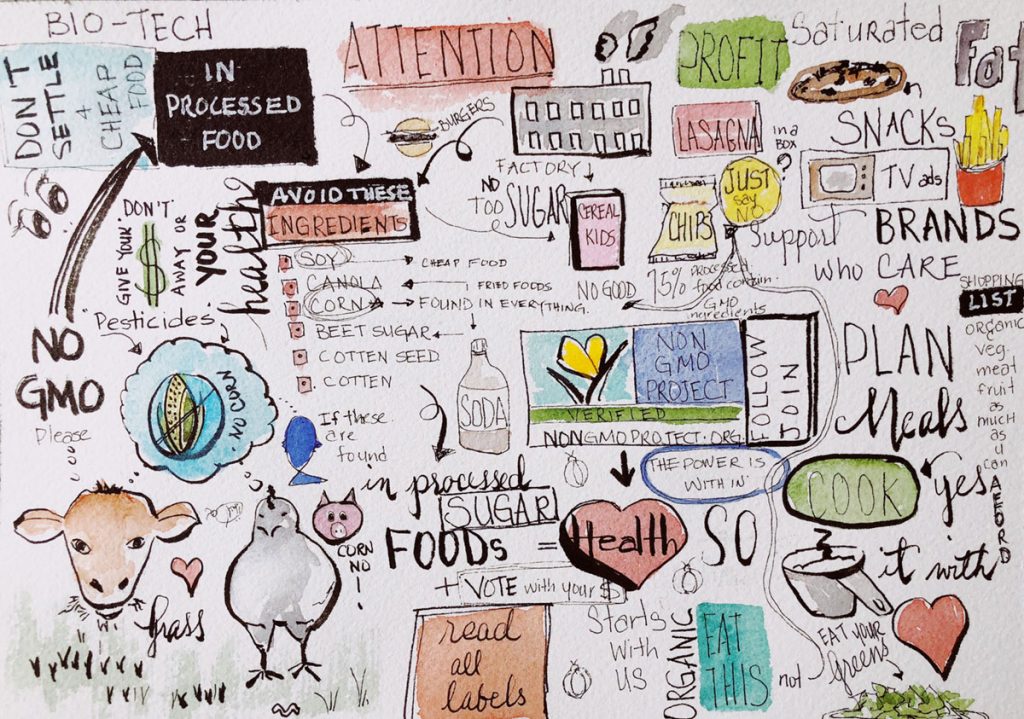 BIO-TECH
DON'T
SETTLE
+
CHEAP
FOOD
IN
PROCESSED
FOOD
ATTENTION
PROFIT
Saturated
Fat
in
SNACKS
BURGERS
LASAGNA
in a
BOX
?
TV ads
FACTORY
NO
TOO
SUGAR
CEREAL
KIDS
NO GOOD
CHIPS
JUST
say
NO
Support
BRANDS
who CARE
AVOID THESE
INGREDIENTS
SOY
CHEAP FOOD
CANOLA
FRIED FOODS
CORN
FOUND IN EVERYTHING.
BEET SUGAR
COTTEN SEED
COTTEN
75% PROCESSED
food contain
GMO
ingredients
GIVE YOUR
DON'T
$
AWAY OR
YOUR
health
Pesticides
NO
GMO
Please
NO CORN
If these
are
found
SODA
NON
GMO
PROJECT
VERIFIED
NONGMOPROJECT.ORG
FOLLOW
JOIN
THE POWER IS
WITH IN
PLAN
Meals
SHOPPING
LIST
ORGANIC
veg.
meat
fruit
as
much
as
u
can
AFFORD
COOK
yes
it with
in processed
SUGAR
FOODS = Health
SO
+ VOTE with your $
CORN
NO!
Grass
read
all
labels
Starts
With
US
ORGANIC
EAT
THIS
not
EAT YOUR
Greens